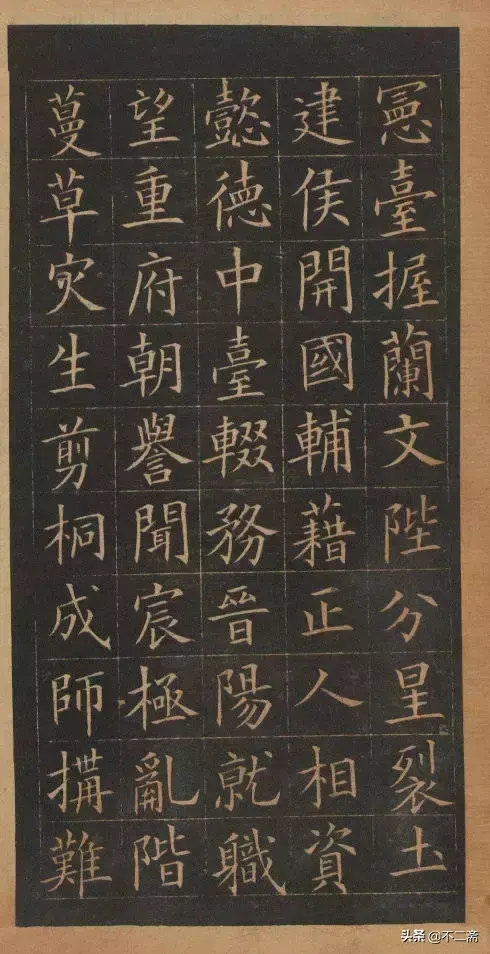 憲臺握蘭文陛分星裂土
建侯開國輔藉正人相資
懿德中臺輟務晉陽就職
望重府朝譽聞宸極亂階
蔓草灾生剪桐成師搆難
头条 @不二斋